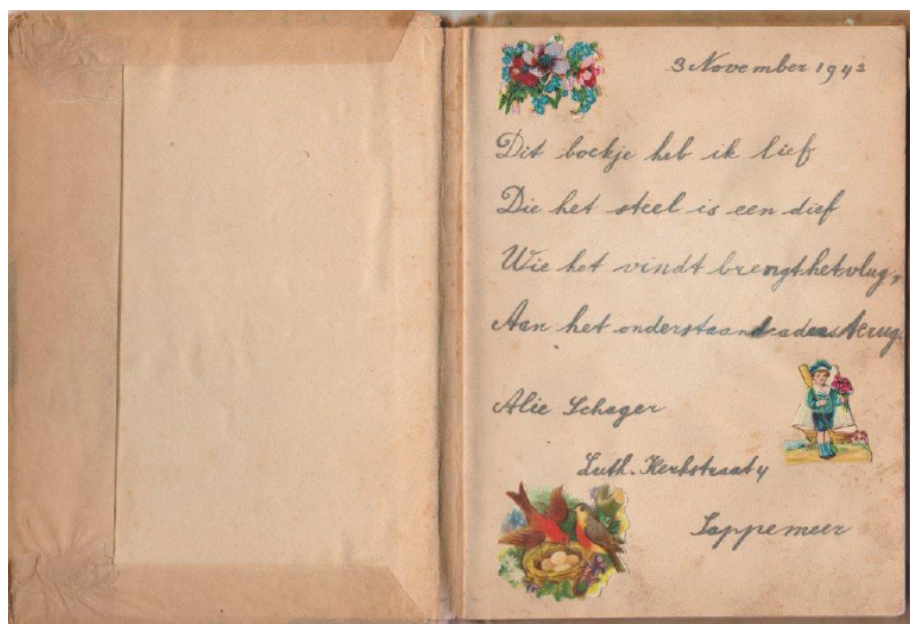 3 November 1943
Dit boekje heb ik lief
Die het steel is een dief
Wie het vindt brengt het vlug,
Aan het onderstaand adres terug.
Alie Schager
Luth. Kerkstraat 4
Sappemeer